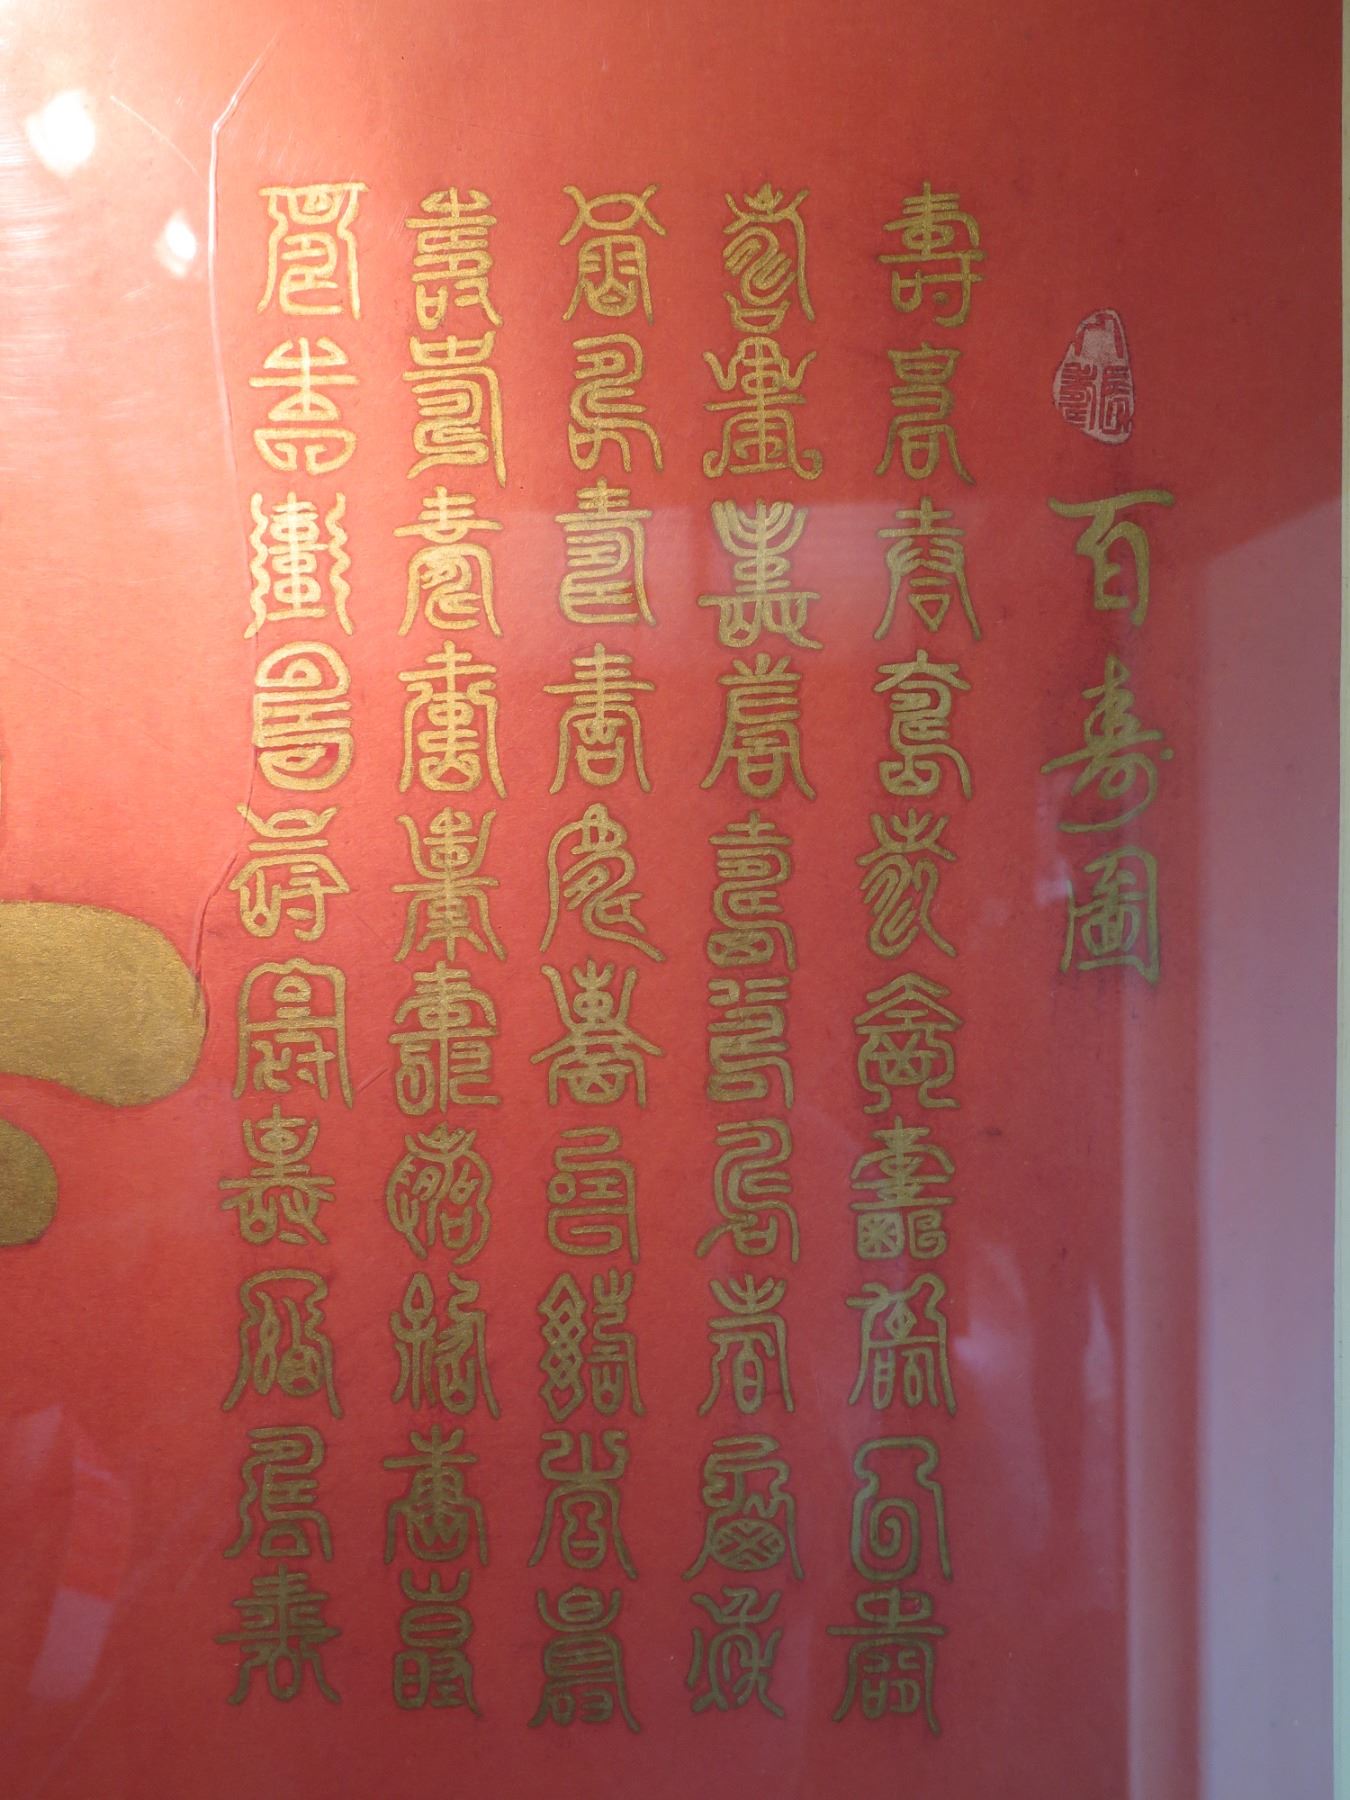 百寿圖
壽壽壽壽壽壽壽壽壽壽
壽壽壽壽壽壽壽壽壽壽
壽壽壽壽壽壽壽壽壽壽
壽壽壽壽壽壽壽壽壽壽
壽壽壽壽壽壽壽壽壽壽